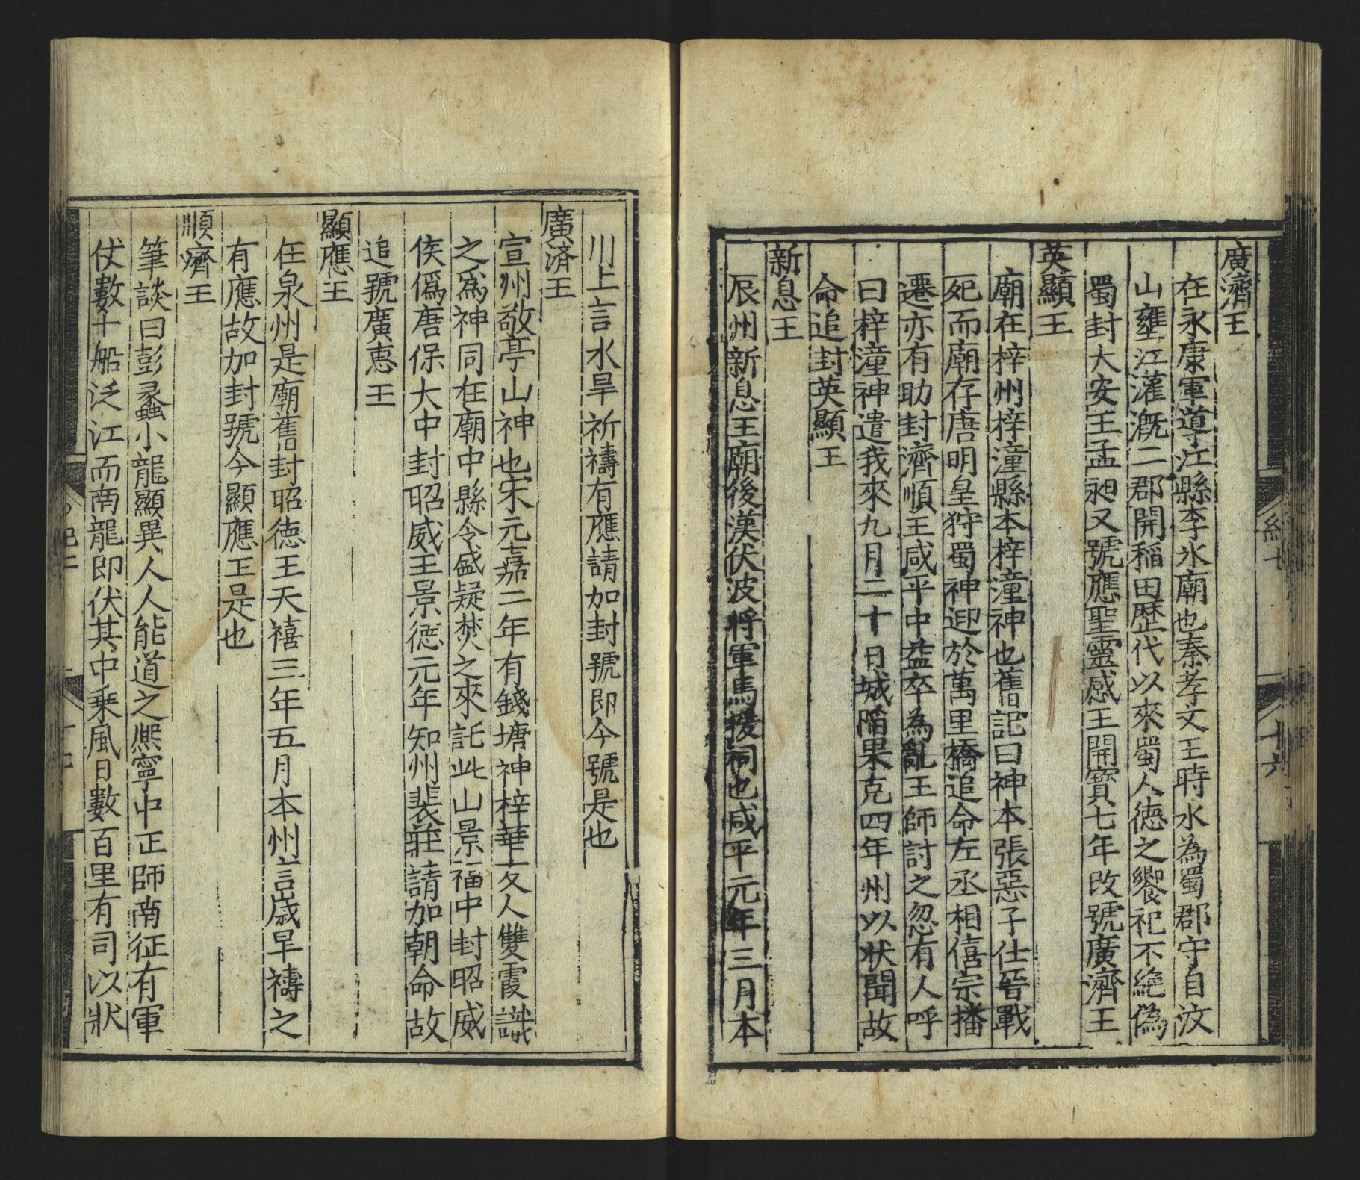 廣濟王
在永康軍導江縣李氷廟也秦孝文王時氷為蜀郡守自汶
山壅江灌漑二郡開稲田歴代以來蜀人德之饗祀不絶偽
蜀封大安王孟昶又號應聖靈感王開寳七年改號廣濟王
英顯王
廟在梓州梓潼縣本梓潼神也舊記曰神本張惡子仕晉戰
死而廟存唐明皇狩蜀神迎於萬里橋追命左丞相僖宗播
遷亦有助封濟順王咸平中益卒為亂王師討之忽有人呼
曰梓潼神遣我來九月二十日城陥果克四年州以状聞故
命追封英顯王
新息王
辰州新息王廟後漢伏波將軍馬援祠也咸平元年三月本
川上言水旱祈禱有應請加封號即今號是也
廣済王
宣州敬亭山神也宋元嘉二年有錢塘神梓華夂人雙霞識
之爲神同在廟中縣令盛疑焚之來託此山景福中封昭威
侯僞唐保大中封昭威王景德元年知州裴莊請加朝命故
追號廣惠王
顯應王
在泉州是廟舊封昭德王天禧三年五月本州言歳早禱之
有應故加封號今顯應王是也
順濟王
筆談曰彭蠡小龍顯異人人能道之熈寧中正師南征有軍
仗數十船泛江而南龍即伏其中乗風日數百里有司以狀